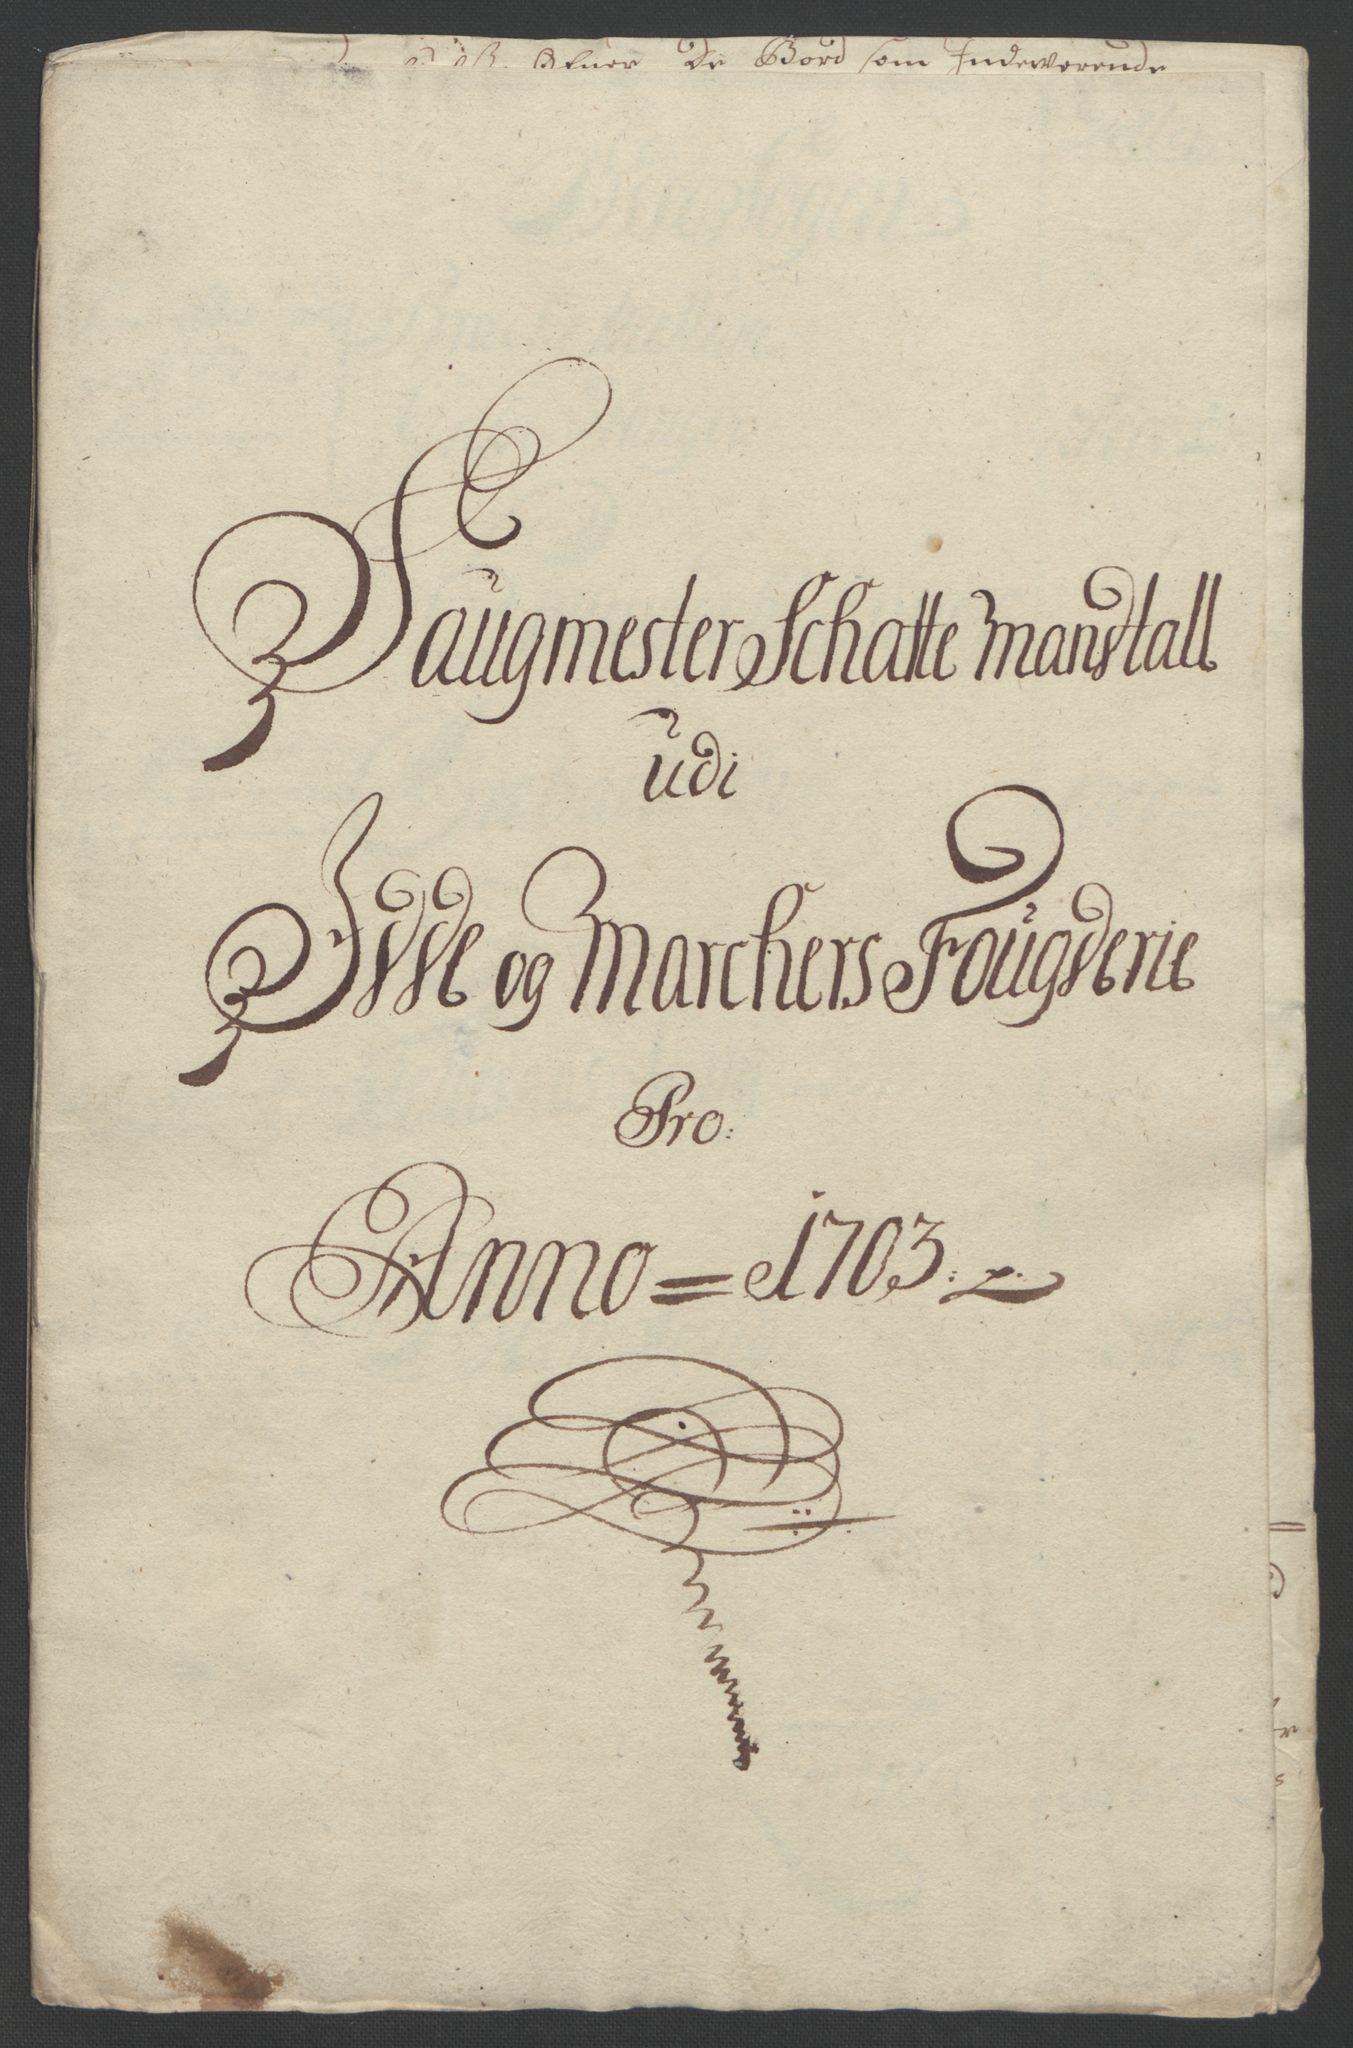 De Bord som Indewerende
Saugmester Schatte Mandtall
udi
Idde og Marchers Fougderie
Pro:
Anno = 1703.